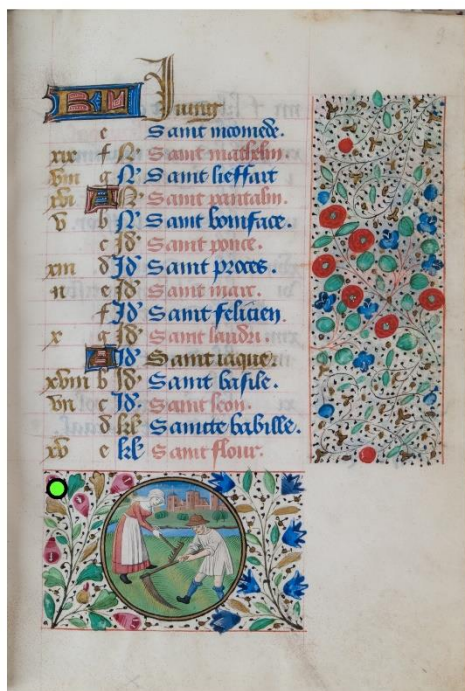 KL Juing
e Saint nicomede.
xix f N Saint mathelin
viii g N Saint lieffart
xvi A N Saint pantalin.
v b N Saint boniface.
c Id Saint ponce.
xiii d Id Saint proces.
ii e Id Saint marc.
f Id Saint felicien.
x g Id Saint landri.
A Id Saint iaque.
xviii b Id Saint basile.
vii c Id Saint leon.
d kl Saincte babille.
xv e kl Saint flour.